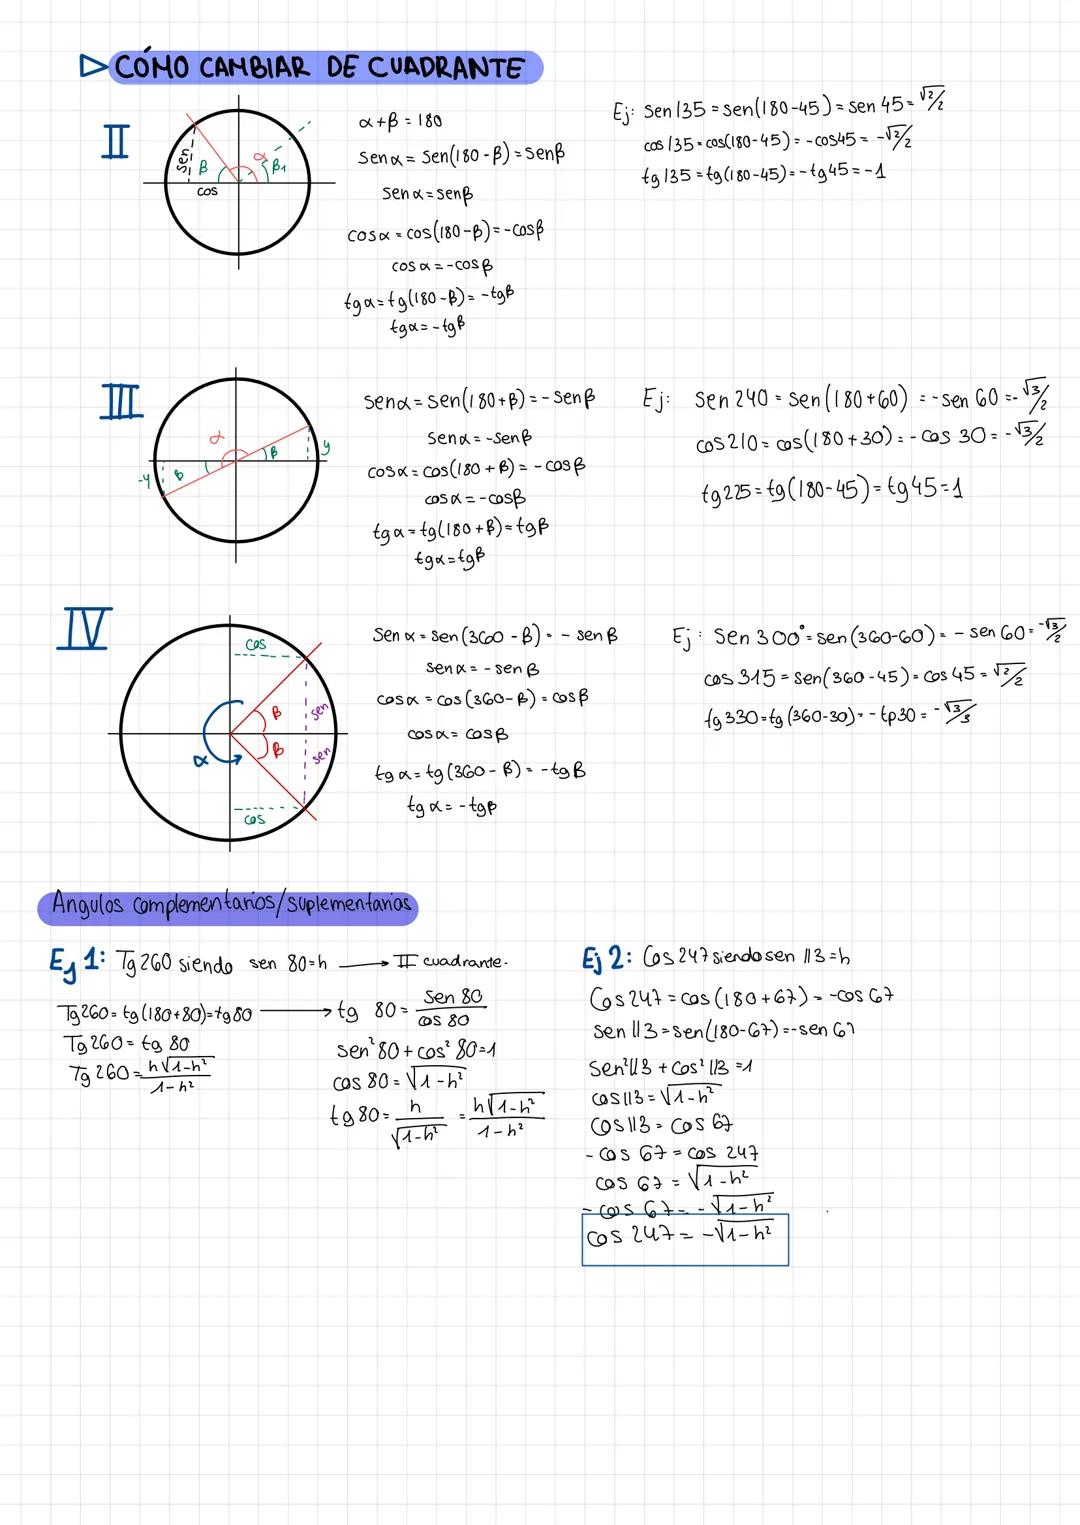 ▷ CÓMO CAMBIAR DE CUADRANTE
II
sen
β
α
β₁
cos
α+β = 180
Sen α = Sen(180-β) = Senβ
Sen α = senβ
cos α = cos(180-β) = -cosβ
cos α = -cos β
tg α = tg(180-β) = -tgβ
tg α = -tgβ
Ej: Sen 135 = sen(180-45) = Sen 45 = √2/2
cos 135 = cos(180-45) = -cos45 = -√2/2
tg 135 = tg(180-45) = -tg45 = -1
III
α
β
y
-y
β
Sen α = Sen(180+β) = -Senβ
Sen α = -Senβ
cos α = cos(180+β) = -cosβ
cos α = -cosβ
tg α = tg(180+β) = tgβ
tg α = tgβ
Ej: Sen 240 = Sen(180+60) = -sen 60 = -√3/2
cos 210 = cos(180+30) = -cos 30 = -√3/2
tg 225 = tg(180-45) = tg 45 = 1
IV
cos
β
sen
β
sen
α
cos
Sen α = sen(360-β) = -senβ
Sen α = -senβ
cos α = cos(360-β) = cosβ
cos α = cosβ
tg α = tg(360-β) = -tgβ
tg α = -tgβ
Ej: Sen 300° = sen(360-60) = -sen 60 = -√3/2
cos 315 = sen(360-45) = cos 45 = √2/2
tg 330 = tg(360-30) = -tp30 = -√3/3
Angulos complementarios/suplementarios
Ej 1: Tg 260 siendo sen 80=h → II cuadrante.
Tg 260 = tg(180+80) = tg 80 → tg 80 = Sen 80/cos 80
Tg 260 = tg 80
Tg 260 = h√1-h²/1-h²
sen² 80 + cos² 80 = 1
cos 80 = √1-h²
tg 80 = h/√1-h² = h√1-h²/1-h²
Ej 2: Cos 247 siendo sen 113 = h
Cos 247 = cos(180+67) = -cos 67
Sen 113 = sen(180-67) = -sen 67
Sen² 113 + cos² 113 = 1
cos 113 = √1-h²
cos 113 = cos 67
-cos 67 = cos 247
cos 67 = √1-h²
-cos 67 = -√1-h²
cos 247 = -√1-h²